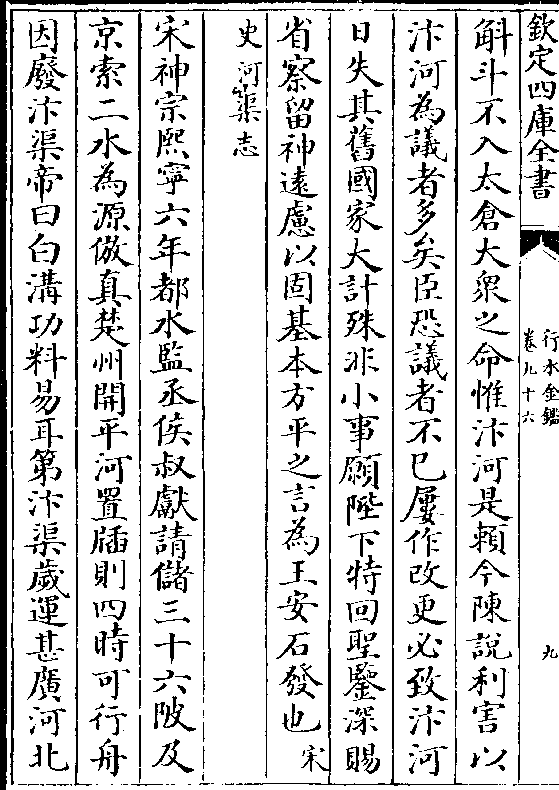 欽定四庫全書
行水金鑑
卷九十六
九
斛斗不入太倉大衆之命惟汴河是賴今陳說利害以
汴河為議者多矣臣恐議者不已屢作改更必致汴河
日失其舊國家大計殊非小事願陛下特回聖鑒深賜
省察留神遠慮以固基本方平之言為王安石發也宋
史河渠志
宋神宗熙寧六年都水監丞侯叔獻請儲三十六陂及
京索二水為源倣真楚州開平河置牐則四時可行舟
因廢汴渠帝曰白溝功料易耳第汴渠歲運甚廣河北